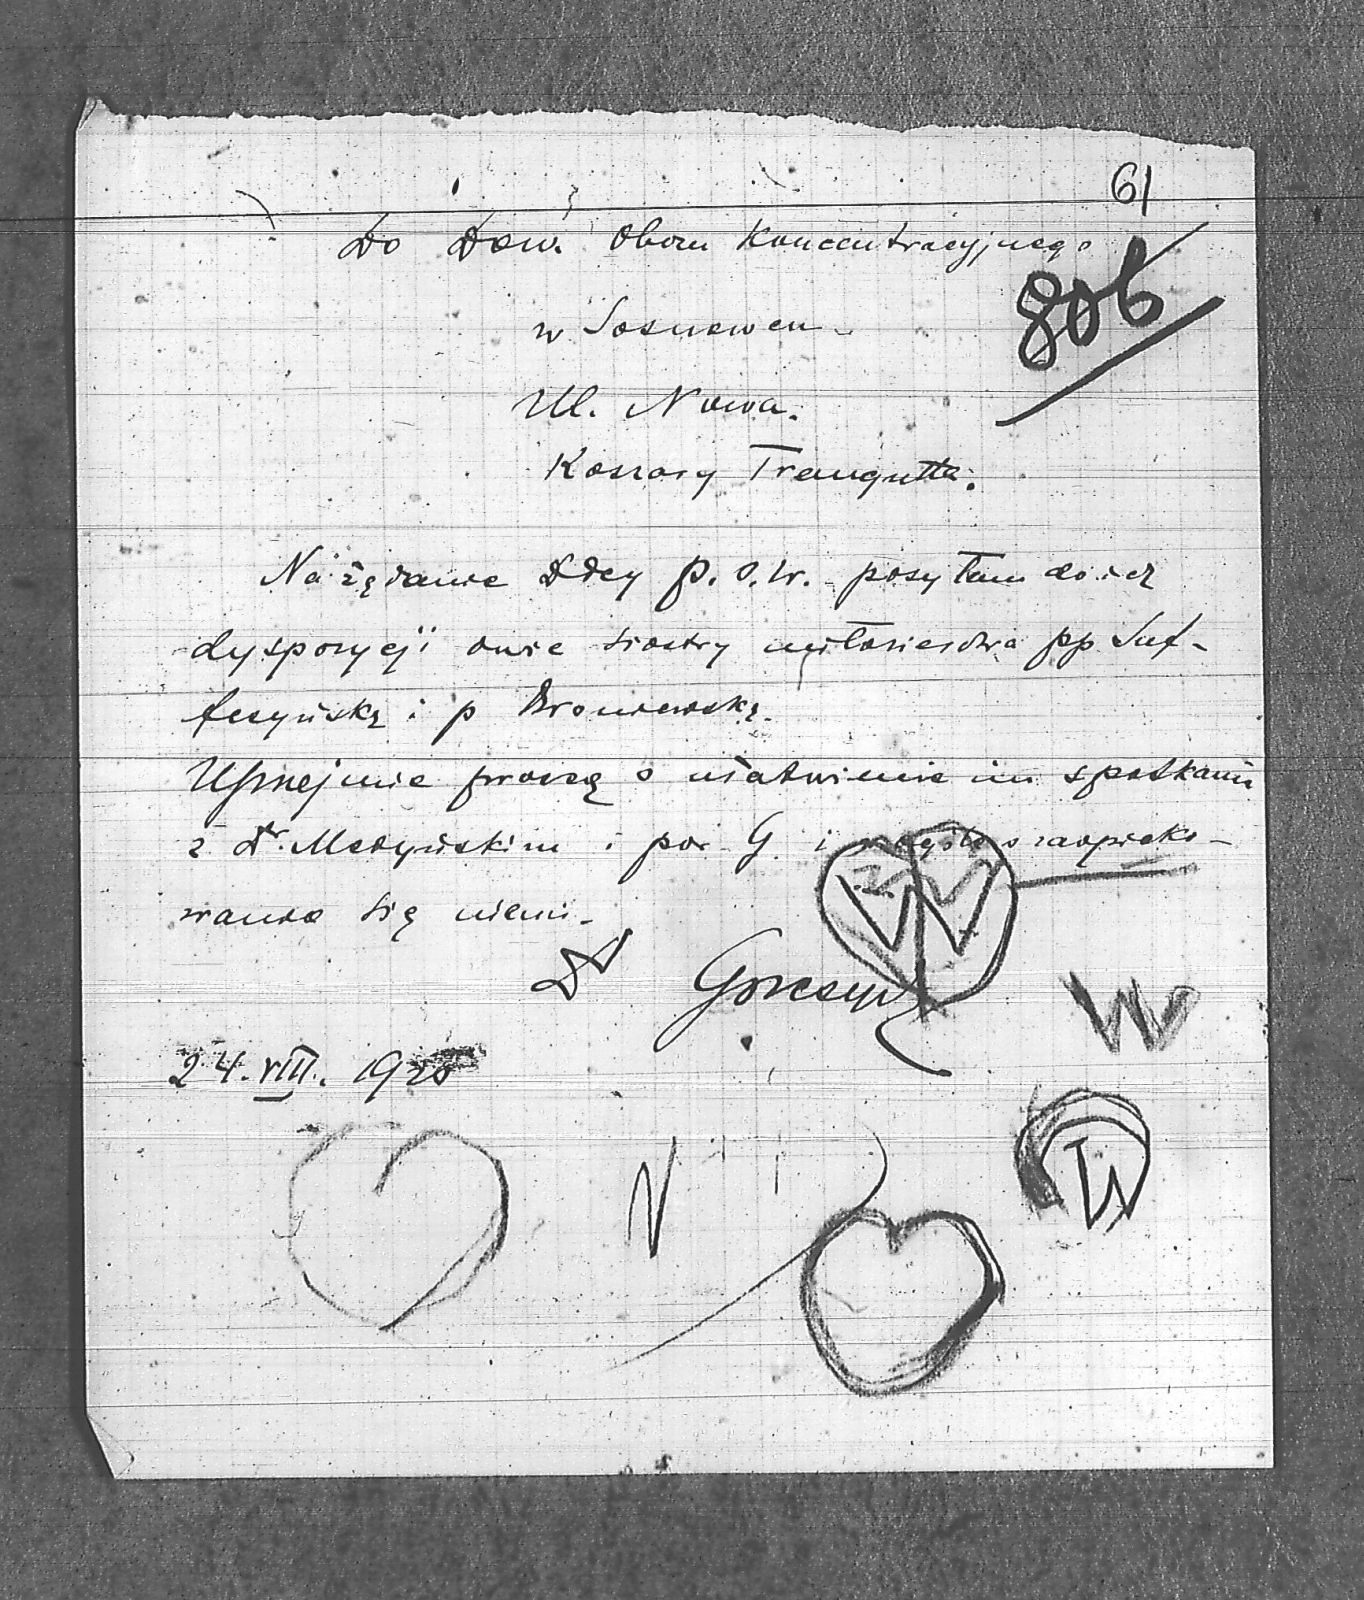 61
Do Dow. Obozu Koncentracyjnego
806
w Sosnowcu
Ul. Nowa.
Koszary Traugutta.
Na żądanie Ddcy P.O.W. posyłam do ich
dyspozycji dwie siostry miłosierdzia pp Suf-
fczyńską i p Broniewską.
Uprzejmie proszę o ułatwienie im spotkania
z Dr. Medyńskim i por G. i o zaopieko-
wanie się niemi.
Dr Gorczyc
W
W
24. VIII. 1920
W
N